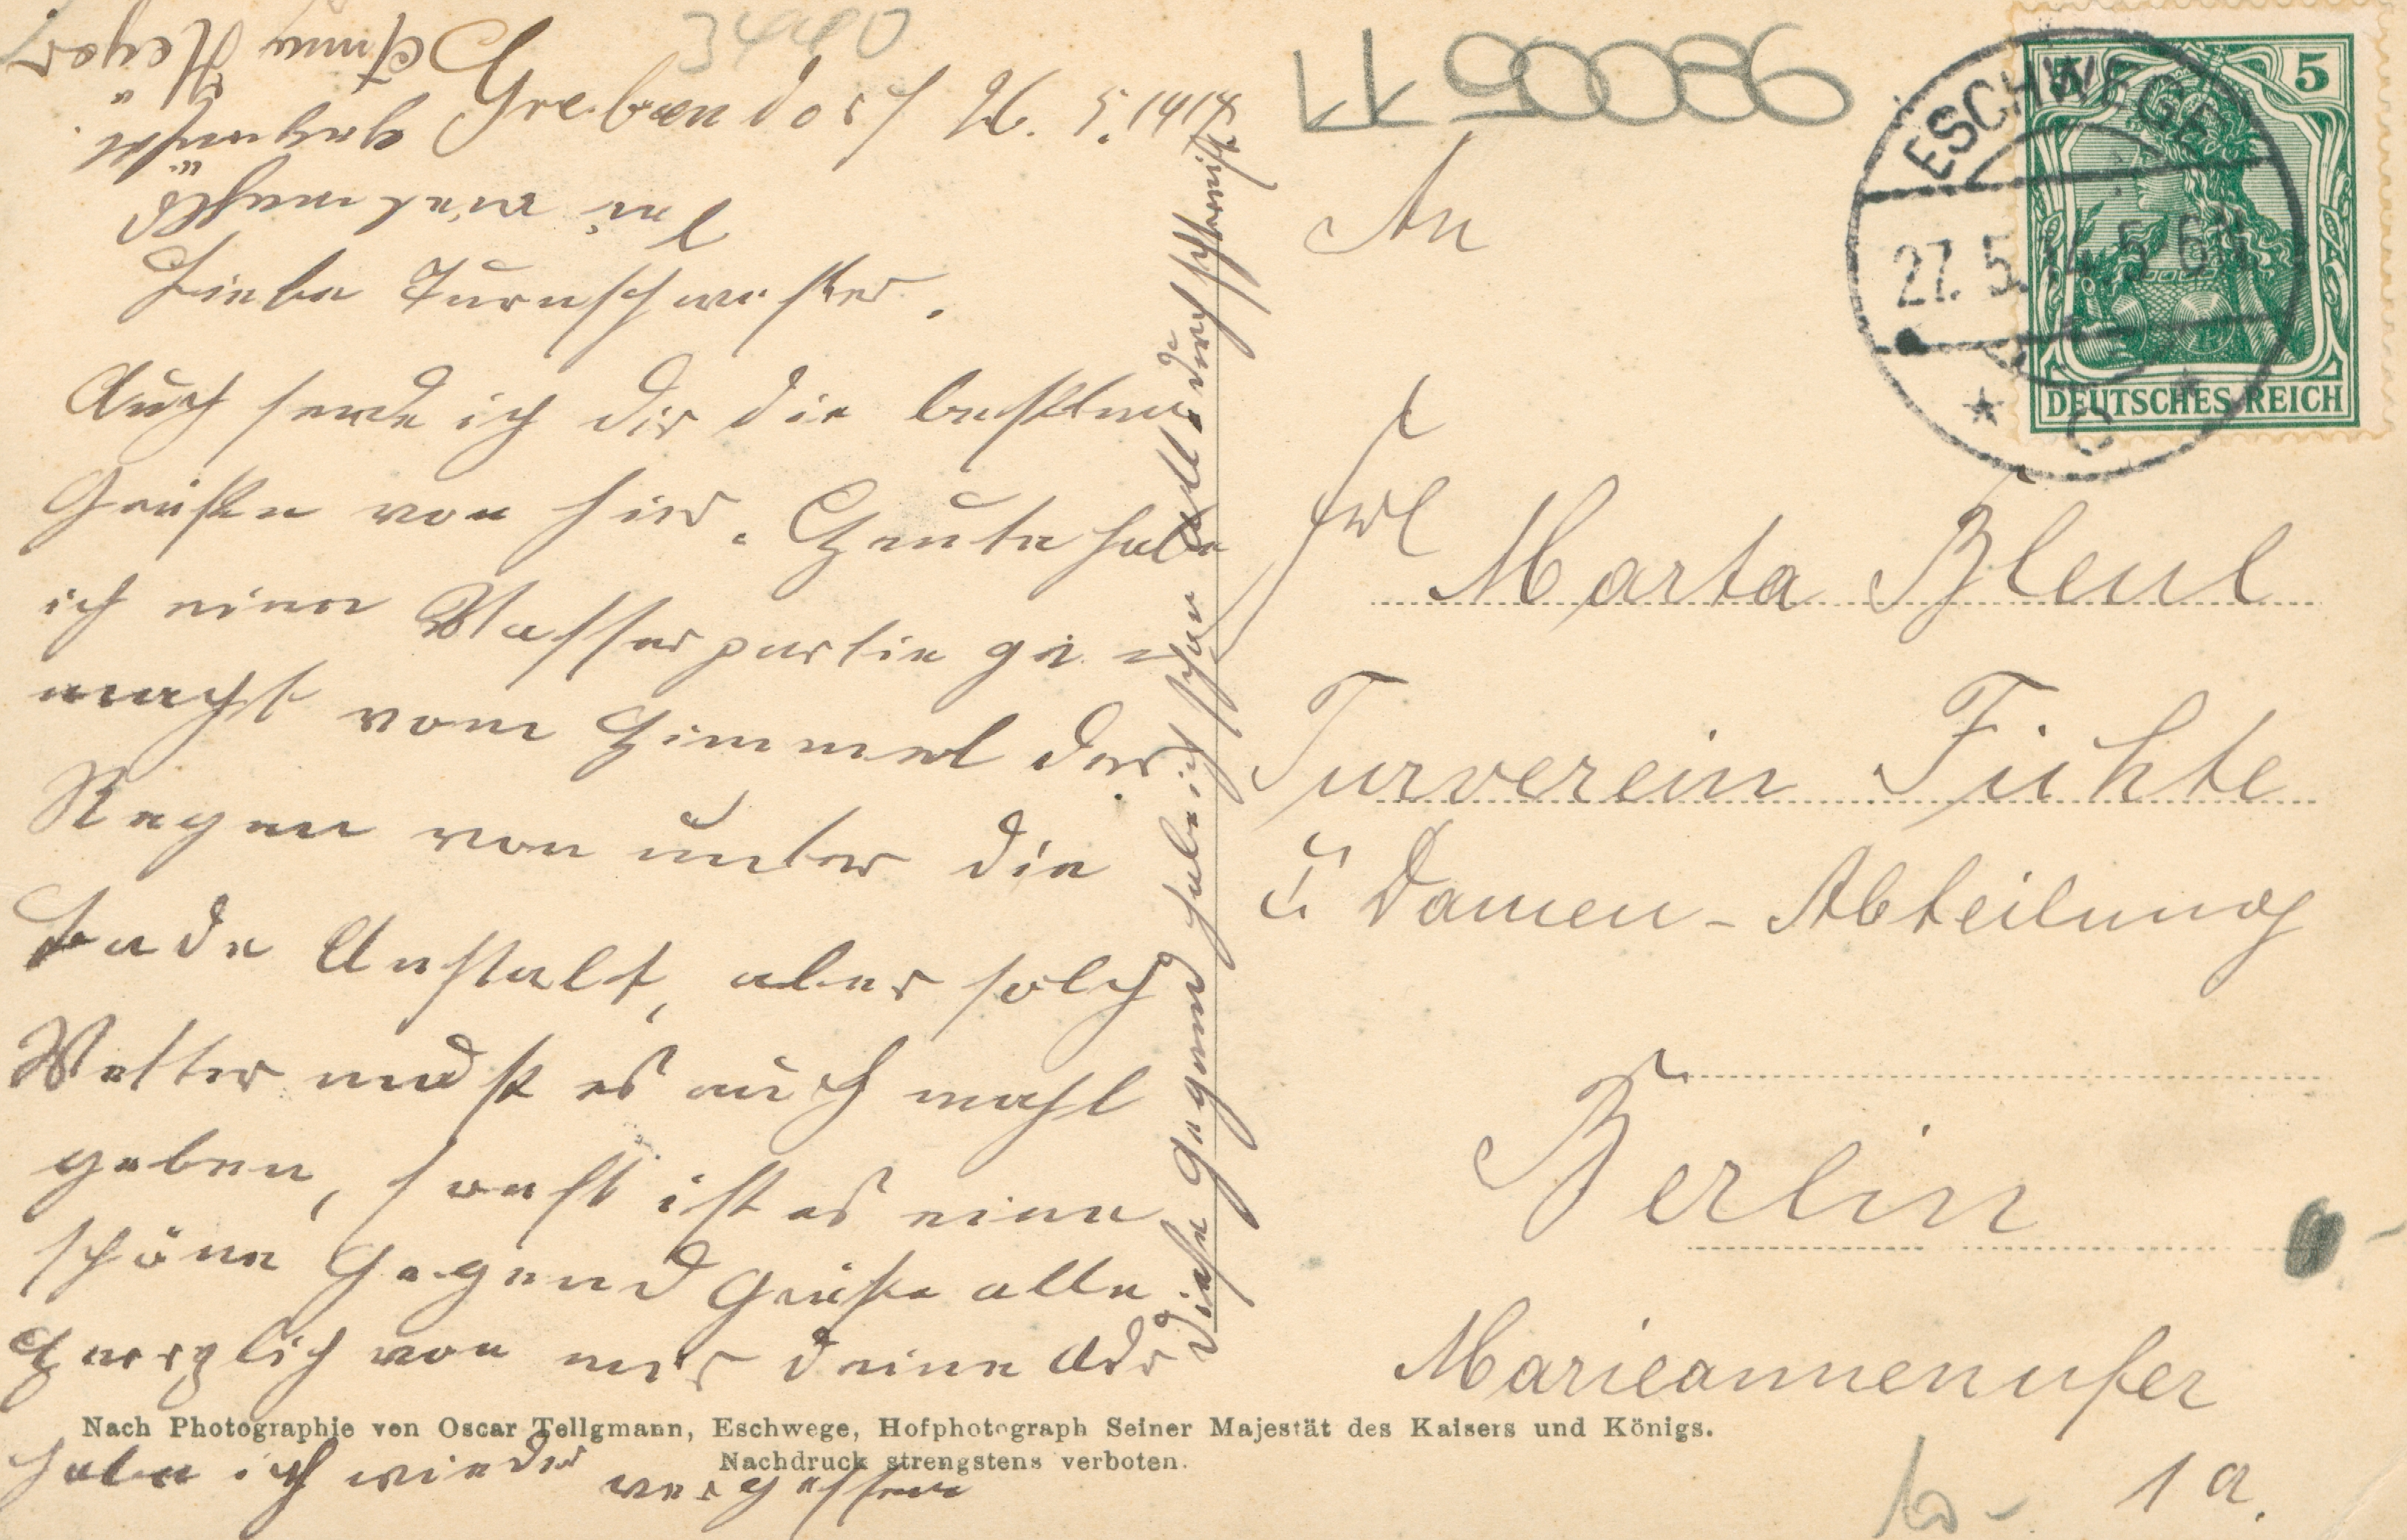 34990
LK 90086
Grebendorf 26. 5. 1914
Liebe Turnschwester.
Auch sende ich dir die besten
Grüße von hier. Heute habe
ich eine Wasserpartie ge=
macht vom Himmel der
Regen von unter die
Bade Anstalt, aber solch
Wetter muß es auch mahl
geben, sonst ist es eine
schöne Gegend Grüße alle
Herzlich von mir deine Adr
habe ich wieder vergessen
Diese Gegend habe ich schon alle durchschtreift.
bei mir
gehangen
Anna Heyer
An
Frl
Marta Bleul
Turverein Fichte
ü Damen-Abteilung
Berlin
Marieannenufer
1 a.
ESCHWEGE
27. 5. 14. 5-6 N
* C *
5
DEUTSCHES REICH
Nach Photographie von Oscar Tellgmann, Eschwege, Hofphotograph Seiner Majestät des Kaisers und Königs.
Nachdruck strengstens verboten.